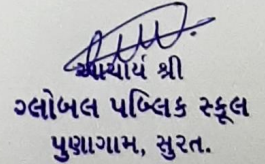 આચાર્ય શ્રી
ગ્લોબલ પબ્લિક સ્કૂલ
પુણાગામ, સુરત.